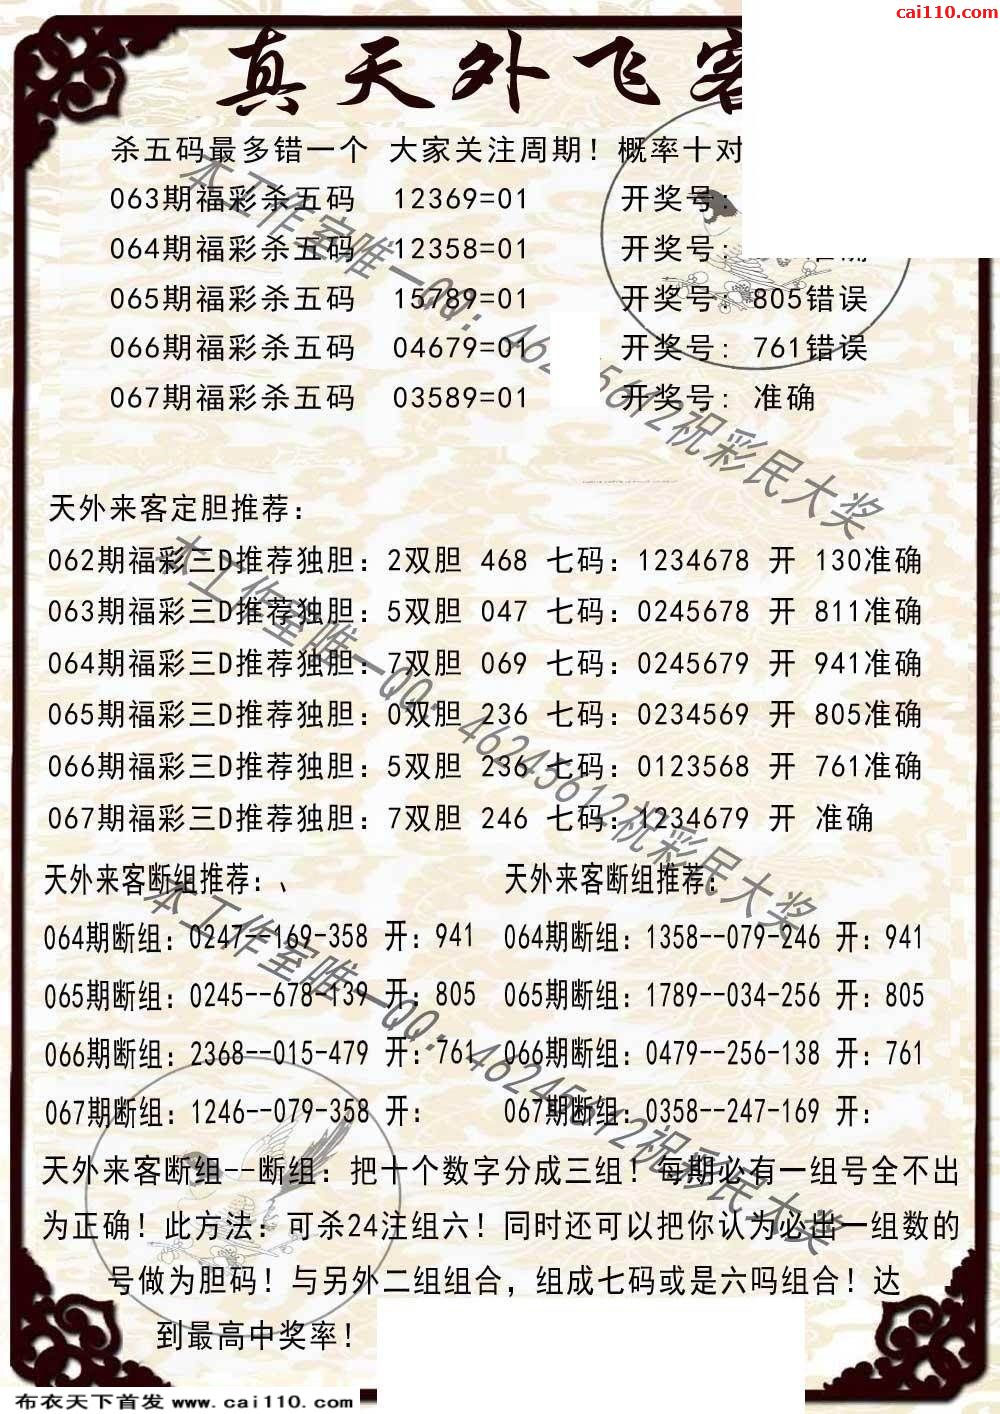 cai110.com
真天外飞客
杀五码最多错一个 大家关注周期！概率十对
063期福彩杀五码 12369=01 开奖号:
064期福彩杀五码 12358=01 开奖号:
065期福彩杀五码 15789=01 开奖号: 805错误
066期福彩杀五码 04679=01 开奖号: 761错误
067期福彩杀五码 03589=01 开奖号: 准确
天外来客定胆推荐:
062期福彩三D推荐独胆: 2双胆 468 七码: 1234678 开 130准确
063期福彩三D推荐独胆: 5双胆 047 七码: 0245678 开 811准确
064期福彩三D推荐独胆: 7双胆 069 七码: 0245679 开 941准确
065期福彩三D推荐独胆: 0双胆 236 七码: 0234569 开 805准确
066期福彩三D推荐独胆: 5双胆 236 七码: 0123568 开 761准确
067期福彩三D推荐独胆: 7双胆 246 七码: 1234679 开 准确
天外来客断组推荐: 、
064期断组: 0247--169-358 开: 941
065期断组: 0245--678-139 开: 805
066期断组: 2368--015-479 开: 761
067期断组: 1246--079-358 开:
天外来客断组推荐:
064期断组: 1358--079-246 开: 941
065期断组: 1789--034-256 开: 805
066期断组: 0479--256-138 开: 761
067期断组: 0358--247-169 开:
天外来客断组--断组: 把十个数字分成三组！每期必有一组号全不出
为正确！此方法: 可杀24注组六！同时还可以把你认为必出一组数的
号做为胆码！与另外二组组合，组成七码或是六吗组合！达
到最高中奖率！
本工作室唯一QQ: 46245612祝彩民大奖
本工作室唯一QQ: 46245612祝彩民大奖
本工作室唯一QQ: 46245612祝彩民大奖
布衣天下首发 www.cai110.com